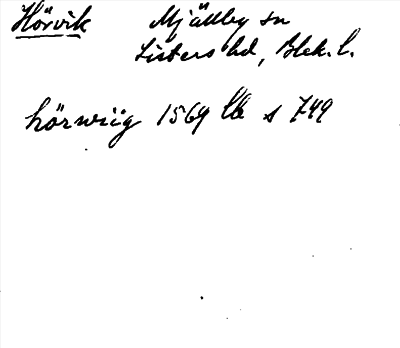 Hörvik Mjällby sn
Listers hd, Blek. l.
hörwiig 1569 lb s 749